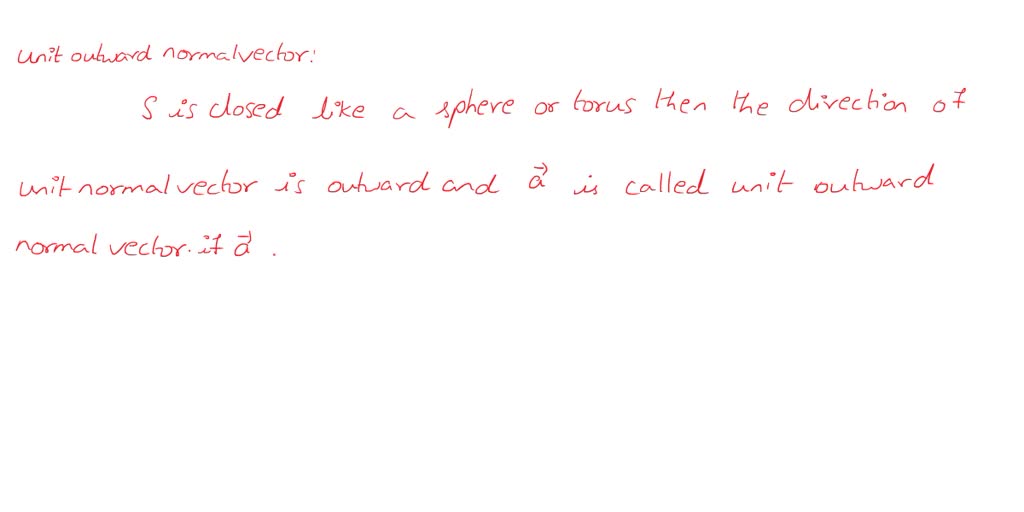 unit outward normalvector:
S is closed like a sphere or torus then the direction of
unit normal vector is outward and a⃗ is called unit outward
normal vector. if a⃗ .